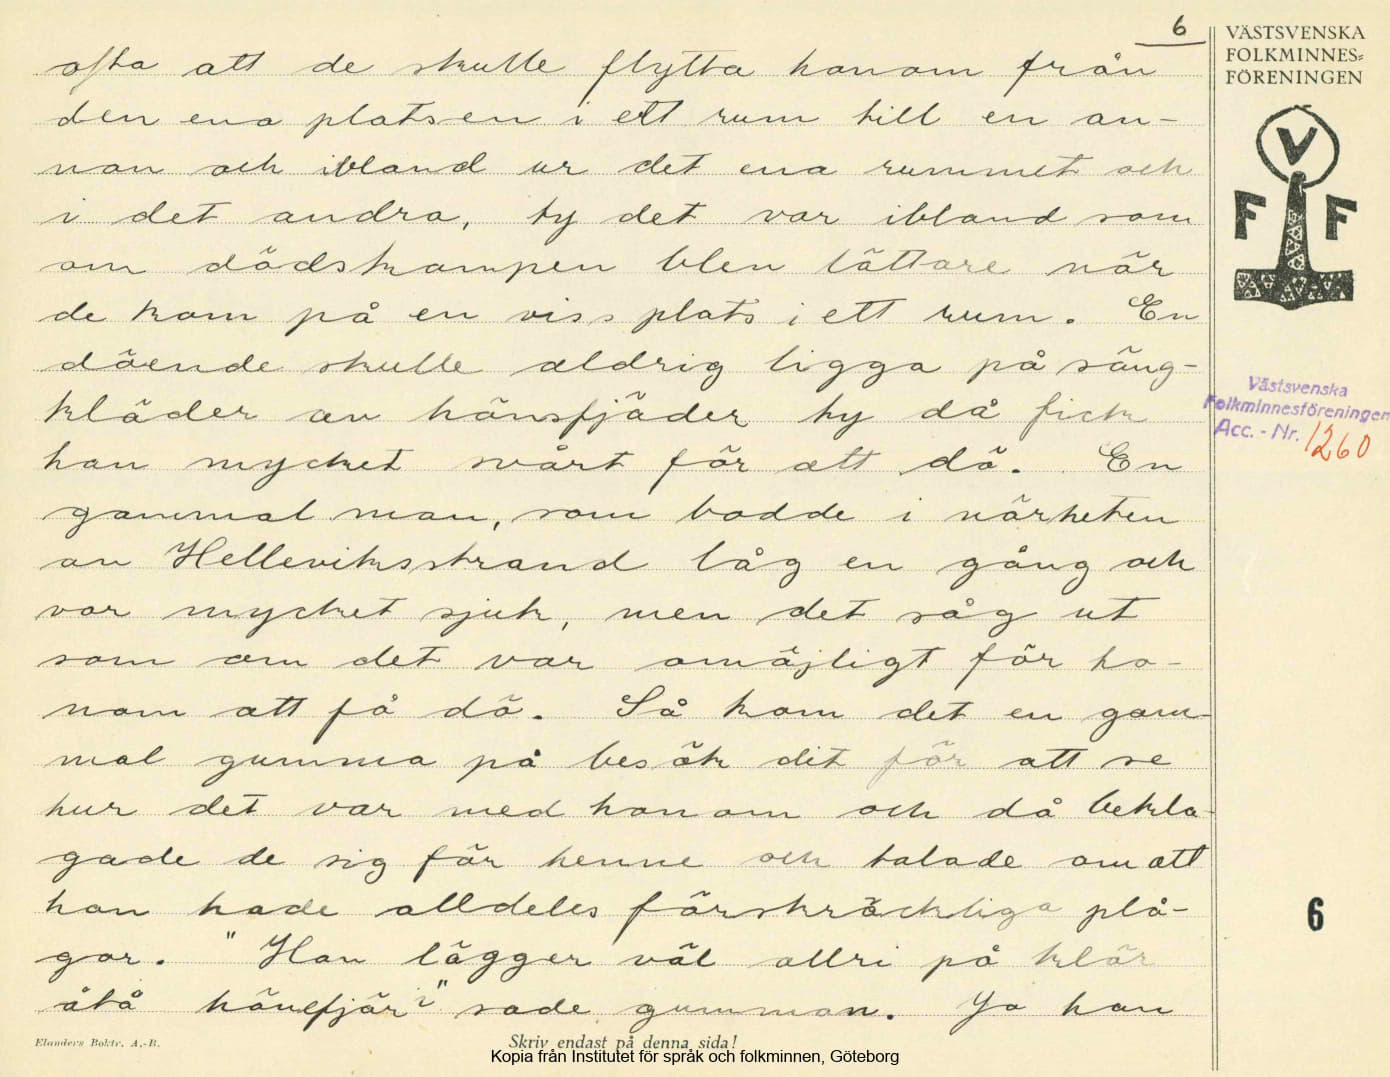 6
ofta att de skulle flytta honom från
den ena platsen i ett rum till en an-
nan och ibland ur det ena rummet och
i det andra, ty det var ibland som
om dödskampen blev lättare när
de kom på en viss plats i ett rum. En
döende skulle aldrig ligga på säng-
kläder av hönsfjäder ty då fick
han mycket svårt för att dö. En
gammal man, som bodde i närheten
av Helleviksstrand låg en gång och
var mycket sjuk, men det såg ut
som om det var omöjligt för ho-
nom att få dö. Så kom det en gam-
mal gumma på besök dit för att se
hur det var med honom och då bekla-
gade de sig för henne och talade om att
han hade alldeles förskräckliga plå-
gor. "Han lägger väl allri på klär
åtå hönefjär i" sade gumman. Ja han
Elanders Boktr. A.-B.
Skriv endast på denna sida!
Kopia från Institutet för språk och folkminnen, Göteborg
VÄSTSVENSKA
FOLKMINNES=
FÖRENINGEN
V
F F
Västsvenska
Folkminnesföreningen
Acc. - Nr. 1260
6